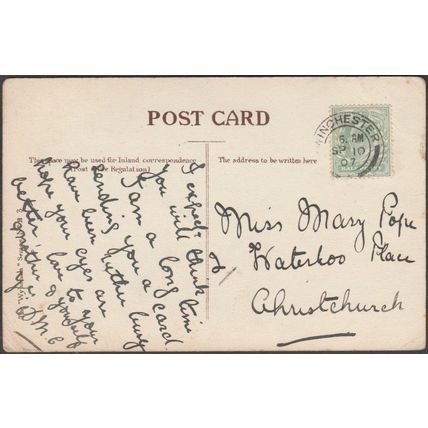 POST CARD
This space may be used for Inland correspondence
(Post Office Regulation)
The address to be written here
WINCHESTER
5. AM
SP 10
07
HALF
I expect think
you will time
I am a long
sending you a card
Have been rather busy
hope your eyes are
better love to your
mother & yourself
D.M.C
Miss Mary Pope
Waterloo Place
Christchurch